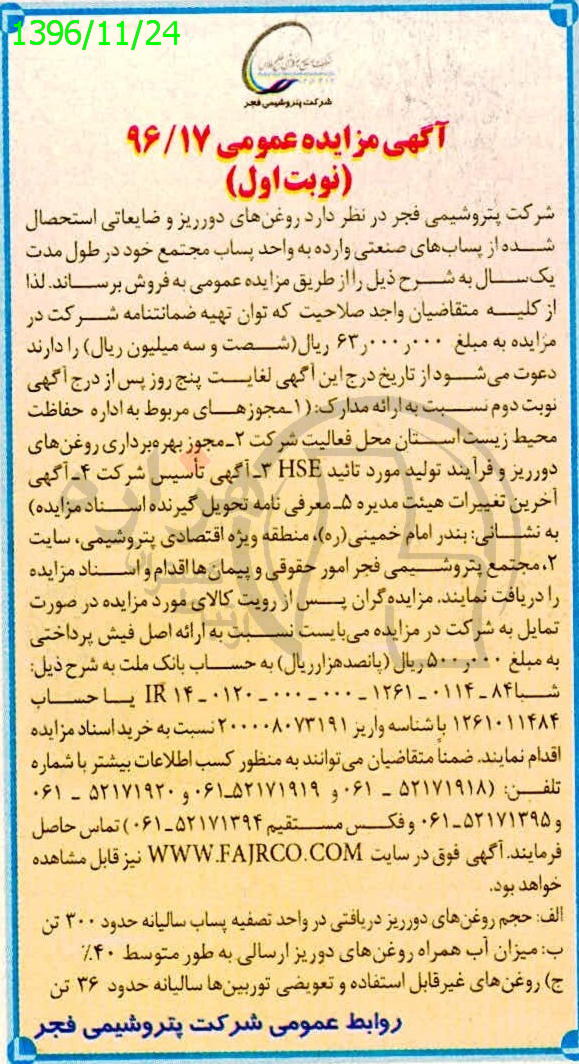 1396/11/24
شرکت پتروشیمی فجر
آگهی مزایده عمومی ۹۶/۱۷
(نوبت اول)
شرکت پتروشیمی فجر در نظر دارد روغن‌های دورریز و ضایعاتی استحصال
شده از پساب‌های صنعتی وارده به واحد پساب مجتمع خود در طول مدت
یک‌سال به شرح ذیل را از طریق مزایده عمومی به فروش برساند. لذا
از کلیه متقاضیان واجد صلاحیت که توان تهیه ضمانتنامه شرکت در
مزایده به مبلغ ۶۳٫۰۰۰٫۰۰۰ ریال(شصت و سه میلیون ریال) را دارند
دعوت می‌شود از تاریخ درج این آگهی لغایت پنج روز پس از درج آگهی
نوبت دوم نسبت به ارائه مدارک: (۱ـ مجوزهای مربوط به اداره حفاظت
محیط زیست استان محل فعالیت شرکت ۲ـ مجوز بهره‌برداری روغن‌های
دورریز و فرآیند تولید مورد تائید HSE ۳ـ آگهی تأسیس شرکت ۴ـ آگهی
آخرین تغییرات هیئت مدیره ۵ـ معرفی نامه تحویل گیرنده اسناد مزایده)
به نشانی: بندر امام خمینی(ره)، منطقه ویژه اقتصادی پتروشیمی، سایت
۲، مجتمع پتروشیمی فجر امور حقوقی و پیمان‌ها اقدام و اسناد مزایده
را دریافت نمایند. مزایده‌گران پس از رویت کالای مورد مزایده در صورت
تمایل به شرکت در مزایده می‌بایست نسبت به ارائه اصل فیش پرداختی
به مبلغ ۵۰۰٫۰۰۰ ریال (پانصدهزارریال) به حساب بانک ملت به شرح ذیل:
شبا ۸۴ ـ ۰۱۱۴ ـ ۱۲۶۱ ـ ۰۰۰ ـ ۰۰۰ ـ ۰۱۲۰ ـ ۱۴ IR یا حساب
۱۲۶۱۰۱۱۴۸۴ با شناسه واریز ۲۰۰۰۰۸۰۷۳۱۹۱ نسبت به خرید اسناد مزایده
اقدام نمایند. ضمناً متقاضیان می‌توانند به منظور کسب اطلاعات بیشتر با شماره
تلفن: (۵۲۱۷۱۹۱۸ ـ ۰۶۱ و ۵۲۱۷۱۹۱۹ـ۰۶۱ و ۵۲۱۷۱۹۲۰ ـ ۰۶۱
و ۵۲۱۷۱۳۹۵ـ۰۶۱ و فکس مستقیم ۵۲۱۷۱۳۹۴ـ۰۶۱) تماس حاصل
فرمایند. آگهی فوق در سایت WWW.FAJRCO.COM نیز قابل مشاهده
خواهد بود.
الف: حجم روغن‌های دورریز دریافتی در واحد تصفیه پساب سالیانه حدود ۳۰۰ تن
ب: میزان آب همراه روغن‌های دورریز ارسالی به طور متوسط ۴۰٪
ج) روغن‌های غیرقابل استفاده و تعویضی توربین‌ها سالیانه حدود ۳۶ تن
روابط عمومی شرکت پتروشیمی فجر